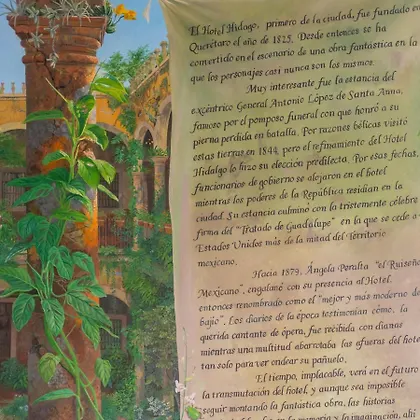 El Hotel Hidago, primero de la ciudad, fue fundado en
Querétaro el año de 1825. Desde entonces se ha
convertido en el escenario de una obra fantástica en la
que los personajes casi nunca son los mismos.
Muy interesante fue la estancia del
excéntrico General Antonio López de Santa Anna,
famoso por el pomposo funeral con que honró a su
pierna perdida en batalla. Por razones bélicas visitó
estas tierras en 1844, pero el refinamiento del Hotel
Hidalgo lo hizo su elección predilecta. Por esas fechas,
funcionarios de gobierno se alojaron en el hotel
mientras los poderes de la República residían en la
ciudad. Su estancia culminó con la tristemente célebre
firma del "Tratado de Guadalupe" en la que se cede a
Estados Unidos más de la mitad del Territorio
mexicano.
Hacia 1879, Ángela Peralta "el Ruiseñor
Mexicano", engalanó con su presencia al Hotel,
entonces renombrado como el "mejor y más moderno del
bajío". Los diarios de la época testimonian cómo, la
querida cantante de ópera, fue recibida con dianas
mientras una multitud abarrotaba las afueras del hotel
tan solo para ver ondear su pañuelo.
El tiempo, implacable, verá en el futuro
la transmutación del hotel, y aunque sea imposible
seguir montando la fantástica obra, las historias
la memoria y la imaginación, ahí